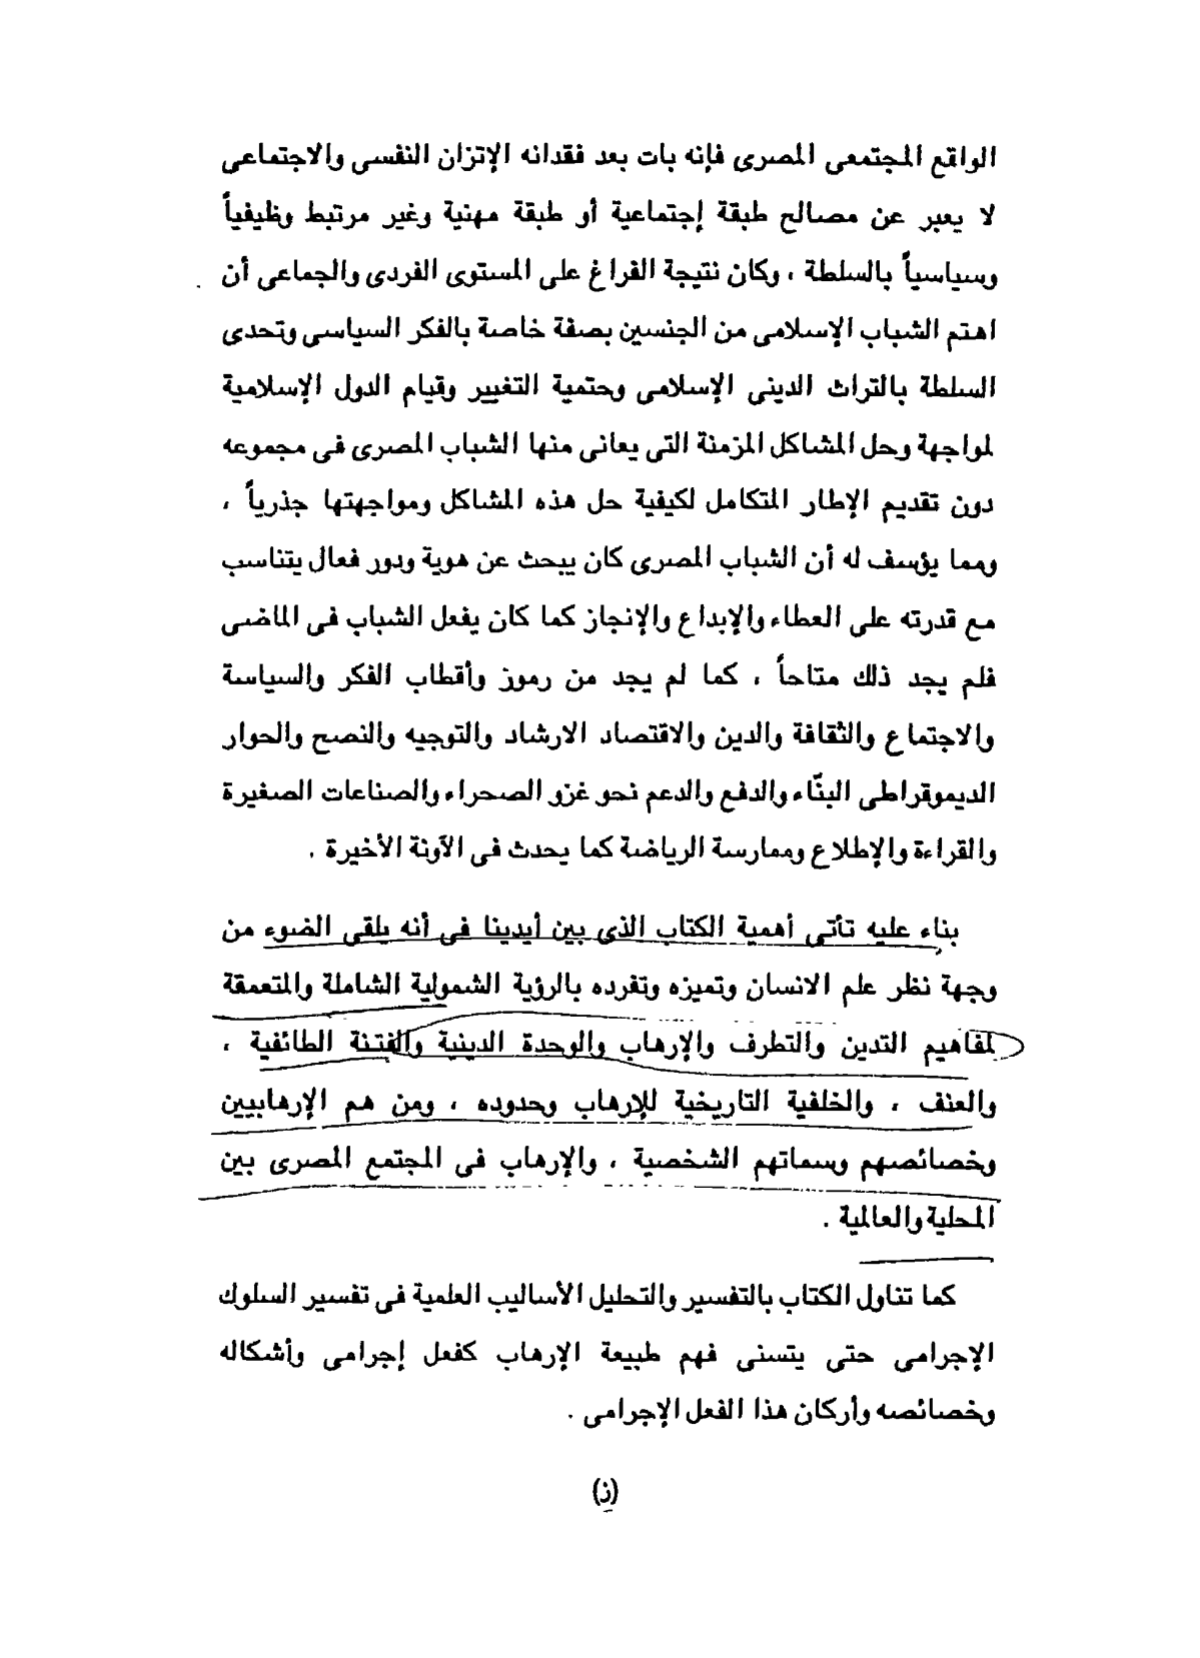 الواقع المجتمعى المصرى فإنه بات بعد فقدانه الإتزان النفسى والاجتماعى
لا يعبر عن مصالح طبقة إجتماعية أو طبقة مهنية وغير مرتبط وظيفياً
وسياسياً بالسلطة ، وكان نتيجة الفراغ على المستوى الفردى والجماعى أن
اهتم الشباب الإسلامى من الجنسين بصفة خاصة بالفكر السياسى وتحدى
السلطة بالتراث الدينى الإسلامى وحتمية التغيير وقيام الدول الإسلامية
لمواجهة وحل المشاكل المزمنة التى يعانى منها الشباب المصرى فى مجموعه
دون تقديم الإطار المتكامل لكيفية حل هذه المشاكل ومواجهتها جذرياً ،
ومما يؤسف له أن الشباب المصرى كان يبحث عن هوية ودور فعال يتناسب
مع قدرته على العطاء والإبداع والإنجاز كما كان يفعل الشباب فى الماضى
فلم يجد ذلك متاحاً ، كما لم يجد من رموز وأقطاب الفكر والسياسة
والاجتماع والثقافة والدين والاقتصاد الارشاد والتوجيه والنصح والحوار
الديموقراطى البنّاء والدفع والدعم نحو غزو الصحراء والصناعات الصغيرة
والقراءة والإطلاع وممارسة الرياضة كما يحدث فى الآونة الأخيرة .
بناء عليه تأتى أهمية الكتاب الذى بين أيدينا فى أنه يلقى الضوء من
وجهة نظر علم الانسان وتميزه وتفرده بالرؤية الشمولية الشاملة والمتعمقة
لمفاهيم التدين والتطرف والإرهاب والوحدة الدينية والفتنة الطائفية ،
والعنف ، والخلفية التاريخية للإرهاب وحدوده ، ومن هم الإرهابيين
وخصائصهم وسماتهم الشخصية ، والإرهاب فى المجتمع المصرى بين
المحلية والعالمية .
كما تناول الكتاب بالتفسير والتحليل الأساليب العلمية فى تفسير السلوك
الإجرامى حتى يتسنى فهم طبيعة الإرهاب كفعل إجرامى وأشكاله
وخصائصه وأركان هذا الفعل الإجرامى .
(ز)